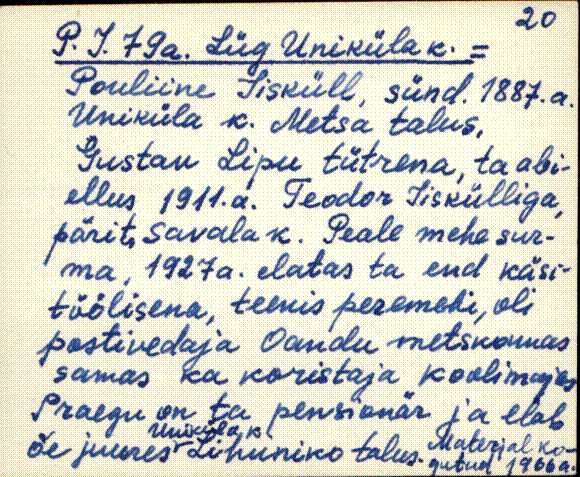 20
P. I. 79a. Lüg Uniküla k. =
Pouliine Iisküll, sünd. 1887. a.
Uniküla k. Metsa talus,
Gustav Lipu tütrena, ta abi-
ellus 1911. a. Teodor Iiskülliga,
pärit, Savala k. Peale mehe sur-
ma, 1927 a. elatas ta end käsi-
töölisena, teenis peremehi, oli
postivedaja Oandu metskonnas
samas ka koristaja koolimajas
Praegu on ta pensionär ja elab
Uniküla k
õe juures Lihuniko talus. Materjal ko-
gutud 1966a.